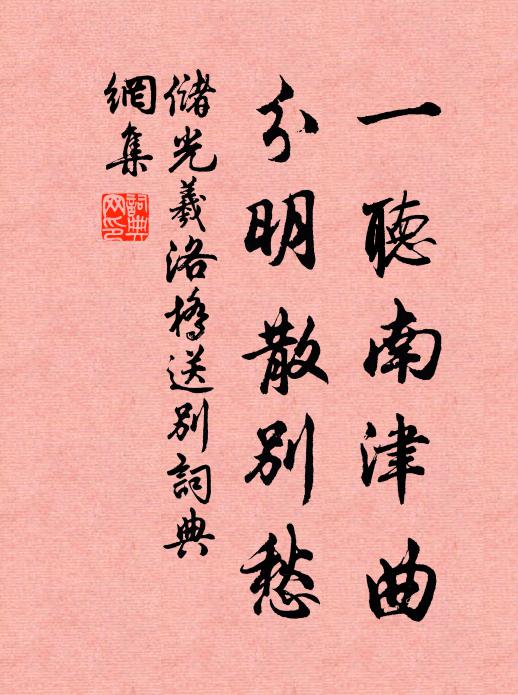 一聽南津曲
分明散別愁
儲光羲洛橋送別詞典
網集
詞典
网印